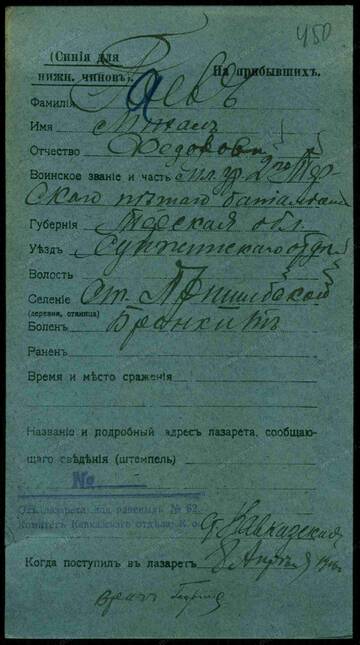 450
(Синія для
нижн. чиновъ).
На прибывшихъ.
Фамилія Гаевъ
Имя Михаилъ
Отчество
Воинское званіе и часть мл. ур. 2го Тер-
скаго пѣшаго баталіона
Губернія Терская обл.
Уѣздъ Сунженскаго отд.
Волость
Селеніе Ст.
(деревня, станица)
Боленъ Бронхитъ
Раненъ
Время и мѣсто сраженія
Названіе и подробный адресъ лазарета, сообщаю-
щаго свѣдѣнія (штемпель)
№
лазарета для раненыхъ № 62.
Комитета Кавказскаго отдѣла К. о.
ст. Кавказская
Когда поступилъ въ лазаретъ 8 Апрѣля
врачъ